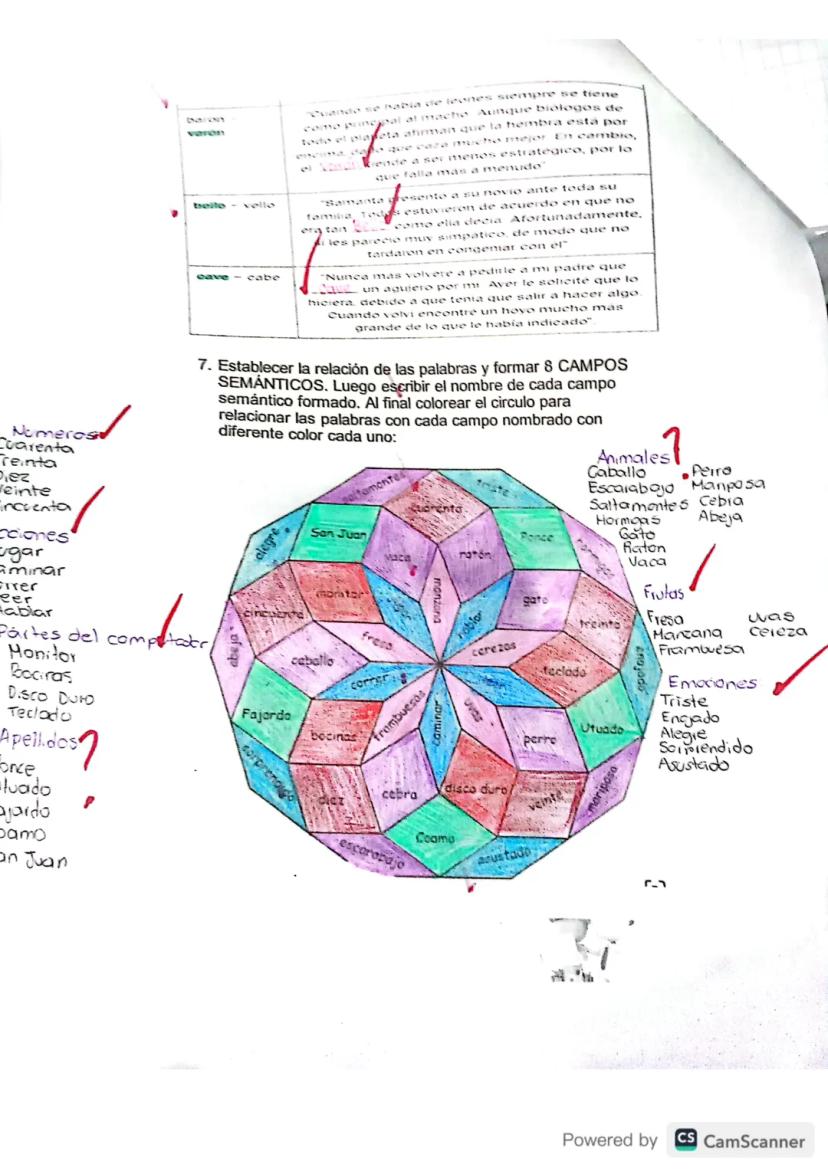 baron -
varón
"Cuando se habla de leones siempre se tiene
como principal al macho. Aunque biólogos de
todo el planeta afirman que la hembra está por
encima, dado que caza mucho mejor. En cambio,
el tiende a ser menos estratégico, por lo
que falla más a menudo"
bello - vello
"Samanta presento a su novio ante toda su
familia. Todos estuvieron de acuerdo en que no
era tan como ella decía. Afortunadamente,
les pareció muy simpático, de modo que no
tardaron en congeniar con él"
cave - cabe
"Nunca más volveré a pedirle a mi padre que
cave un agujero por mi. Ayer le solicité que lo
hiciera, debido a que tenía que salir a hacer algo.
Cuando volví encontré un hoyo mucho más
grande de lo que le había indicado".
7. Establecer la relación de las palabras y formar 8 CAMPOS
SEMÁNTICOS. Luego escribir el nombre de cada campo
semántico formado. Al final colorear el circulo para
relacionar las palabras con cada campo nombrado con
diferente color cada uno:
Numeros
Cuarenta
Treinta
Diez
Veinte
incuenta
cciones
ugar
aminar
rrer
eer
Hablar
Partes del computador
Monitor
Bocinas
Disco Duro
Teclado
Apellidos
once
tuado
ajardo
oamo
an Juan
Animales
Caballo Perro
Escarabajo Mariposa
Saltamontes Cebra
Hormigas Abeja
Gato
Raton
Vaca
Frutas
Fresa uvas
Manzana Cereza
Frambuesa
Emociones
Triste
Enojado
Alegre
Sorprendido
Asustado
saltamontes
triste
cuarenta
San Juan
Ponce
alegre
vaca
ratón
hormigas
monitor
manzana
gato
cincuenta
treinta
abeja
fresa
cerezas
caballo
teclado
enojado
correr
Fajardo
bocinas
frambuesas
caminar
uvas
perro
Utuado
sorprendido
diez
cebra
disco duro
veinte
mariposa
Coamo
escarabajo
asustado
Powered by CS CamScanner